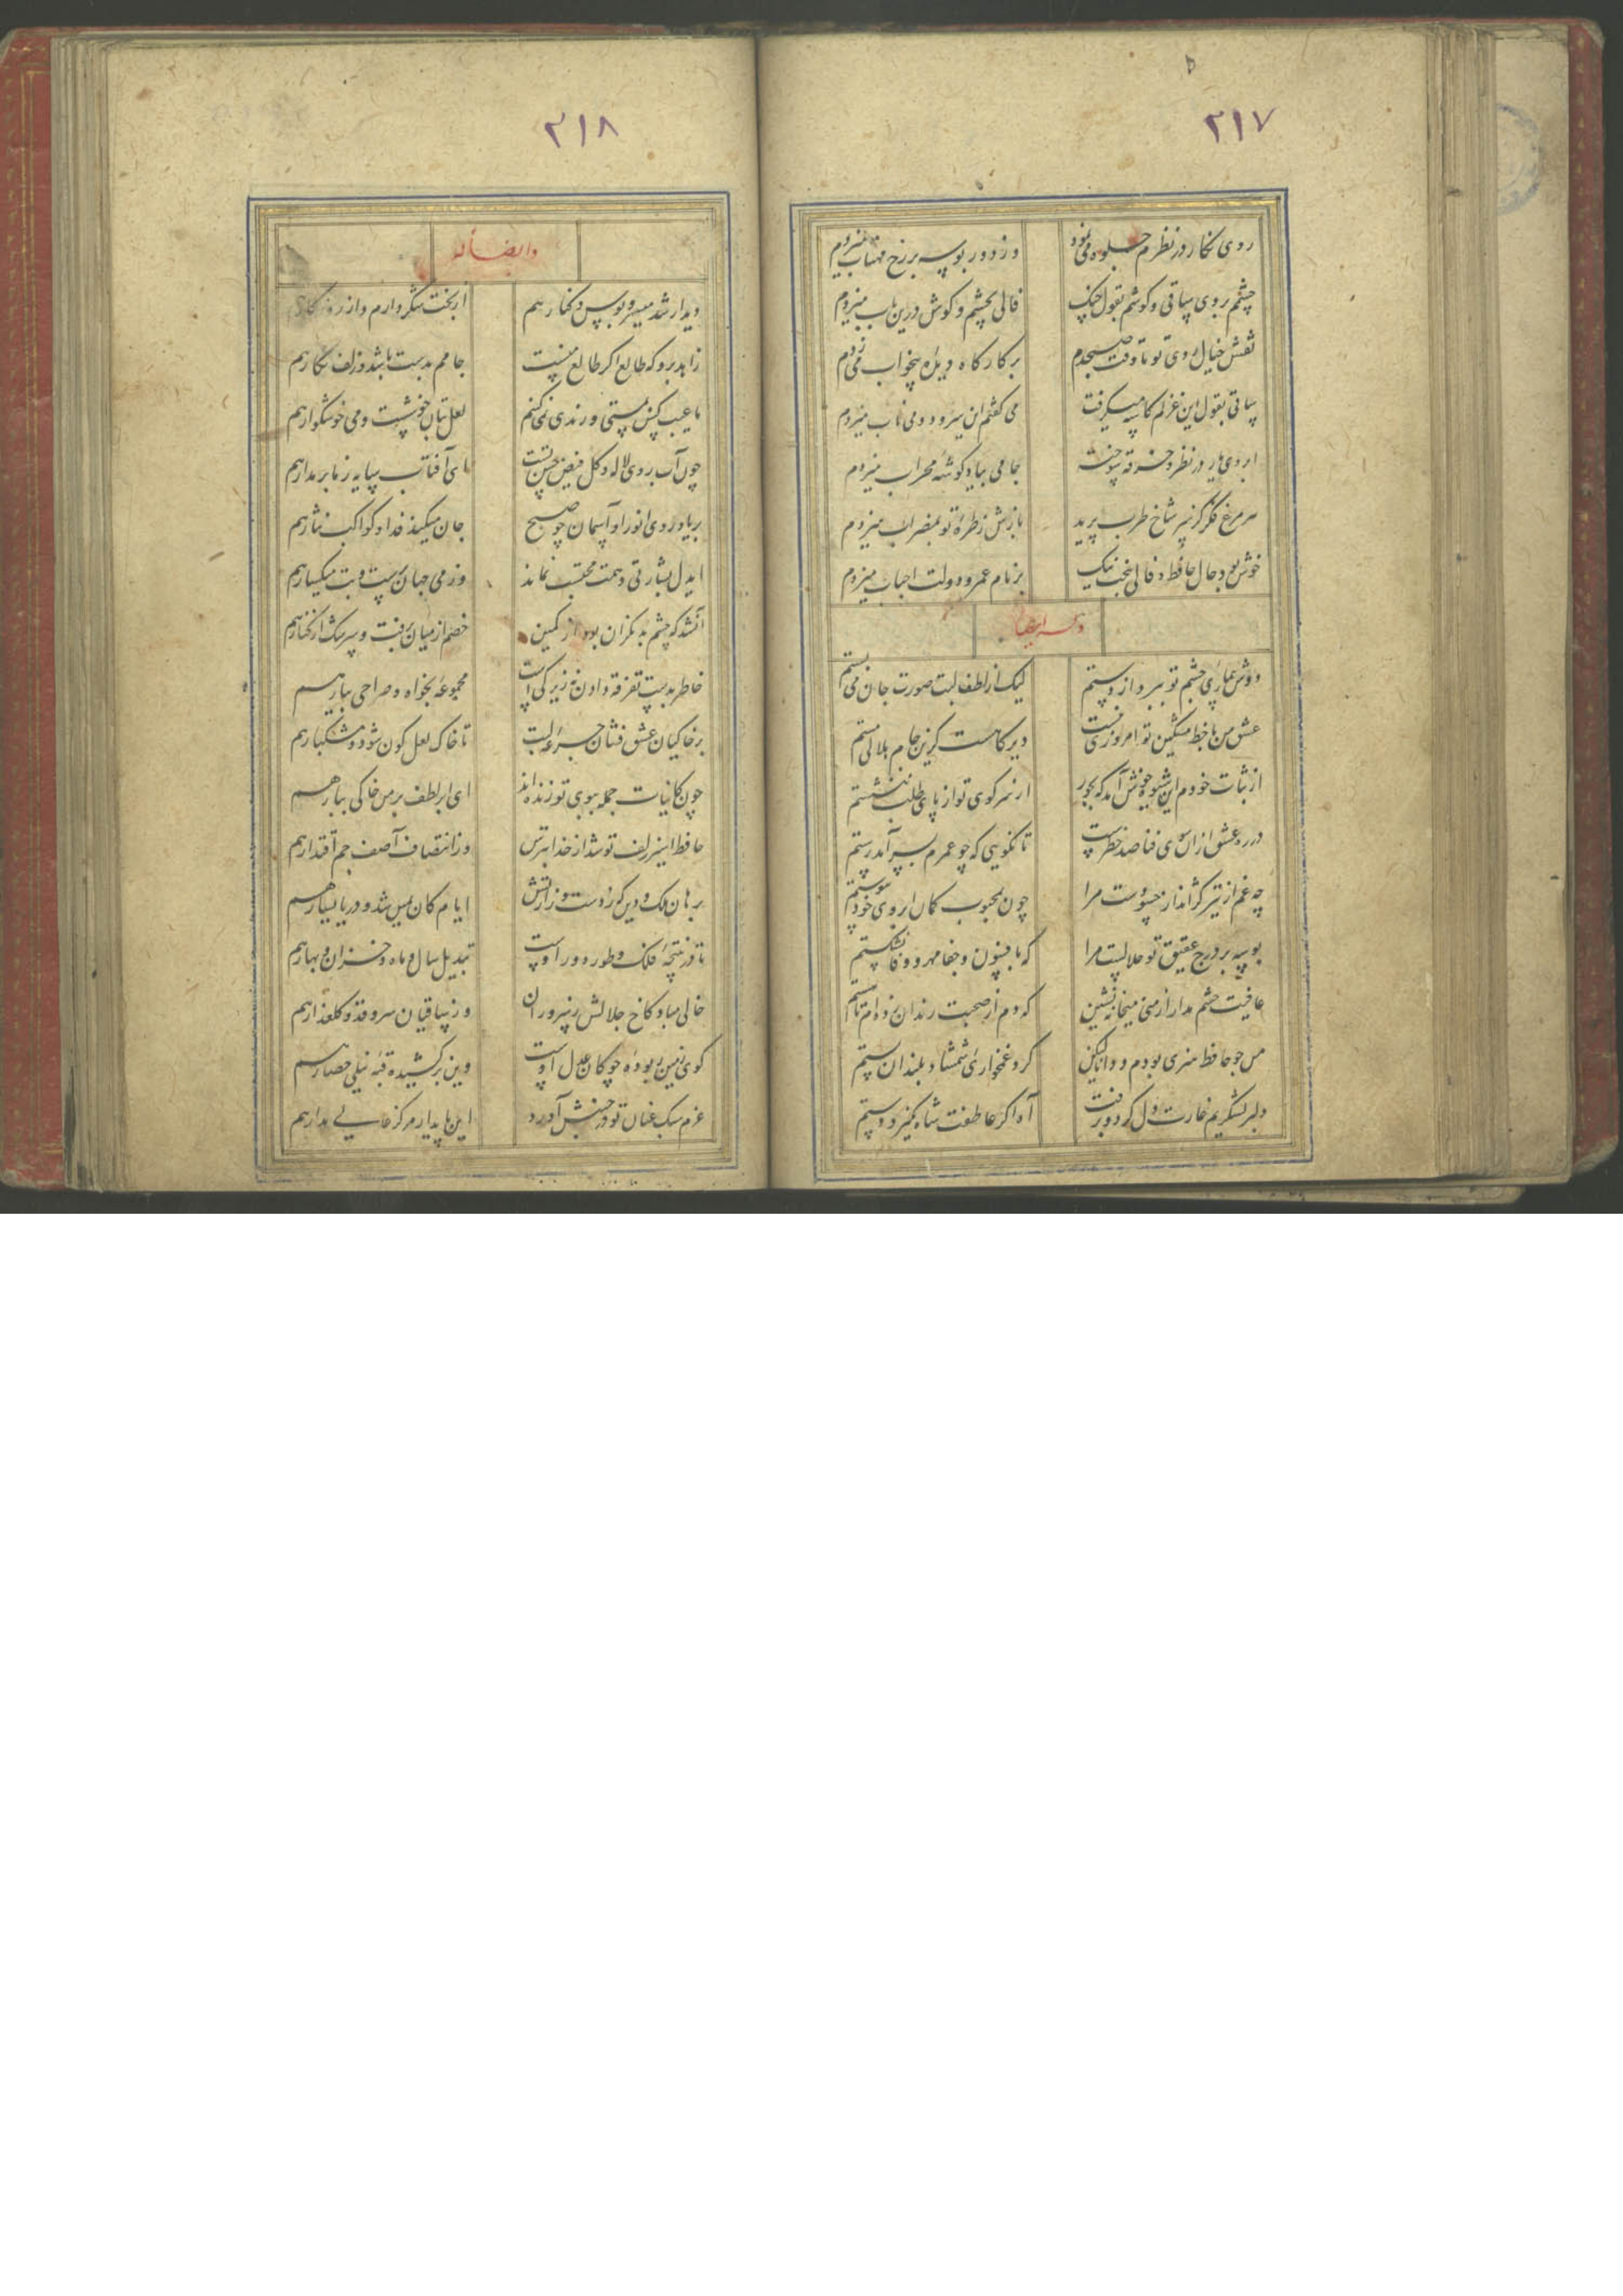 ۳۱۷
روی نکار در نظرم جلوه می نمود وز دور بوسه بر رخ مهتاب میزدم
چشمم بروی ساقی و کوشم بقول چنک فالی بچشم و کوش درین باب میزدم
نقش خیال روی تو تا وقت صبحدم بر کارکاه دیده بیخواب می زدم
ساقی بقول این غزلم کاسه میکرفت می کفتم این سرود و می ناب میزدم
ابروی یار در نظر و خرقه سوخته جامی بیاد کوشه محراب میزدم
هر مرغ فکر کز سر شاخ طرب پرید بازش ز طره تو بمضراب میزدم
خوش بود حال حافظ و فالی ببخت نیک بر نام عمر و دولت احباب میزدم
وله ایضا
دوش بیماری چشم تو ببرد از دستم لیک از لطف لبت صورت جان می بستم
عشق من با خط مشکین تو امروزی نیست دیرکاهست کزین جام هلالی مستم
از ثبات خودم این شیوه خوش آمد که بجور از سر کوی تو از پای طلب ننشستم
در ره عشق از ان سوی فنا صد خطرست تا نکویی که چو عمرم بسر آمد رستم
چه غم از تیر کژانداز حسودست مرا چون بمحبوب کمان ابروی خود پیوستم
بوسه بر درج عقیق تو حلالست مرا که بافسون و جفا مهر وفا نشکستم
عافیت چشم مدار از من میخانه نشین که دم از صحبت رندان زده ام تا هستم
من چو حافظ هنری بودم و دانا لیکن کرد غمخواری شمشاد بلندان پستم
دلبر لشکریم غارت دل کرد و برفت آه اکر عاطفت شاه نکیرد دستم
۳۱۸
وایضا له
دیدار شد میسر و بوس و کنار هم از بخت شکر دارم و از روزکار هم
زاهد برو که طالع اکر طالع منست جامم بدست باشد و زلف نکار هم
ما عیب کس بمستی و رندی نمی کنم لعل بتان خوشست و می خوشکوار هم
چون آب روی لاله و کل فیض حسن تست ای آفتاب سایه ز ما بر مدار هم
بر یاد روی انور او آسمان چو صبح جان میکند فدا و کواکب نثار هم
ایدل بشارتی دهمت محتسب نماند وز می جهان پرست و بت میکسار هم
آنشد که چشم بد نکران بود از کمین خصم از میان برفت و سرشک از کنار هم
خاطر بدست تفرقه دادن نه زیرکی است مجموعه بخواه و صراحی بیار هم
بر خاکیان عشق فشان جرعه لبت تا خاک لعل کون شود و مشکبار هم
چون کاینات جمله ببوی تو زنده اند ای ابر لطف بر من خاکی ببار هم
حافظ اسیر زلف تو شد از خدا بترس وز انتصاف آصف جم اقتدار هم
برهان ملک و دین که ز دست وزارتش ایام کان یمین شد و دریا یسار هم
تا در نتیجه فلک و طور دور اوست تبدیل سال و ماه و خزان و بهار هم
خالی مباد کاخ جلالش ز سروران وز ساقیان سرو قد و کلعذار هم
کوی زمین ربوده چوکان عدل اوست وین برکشیده قبه نیلی حصار هم
عزم سبک عنان تو در جنبش آورد این پایدار مرکز عالی مدار هم